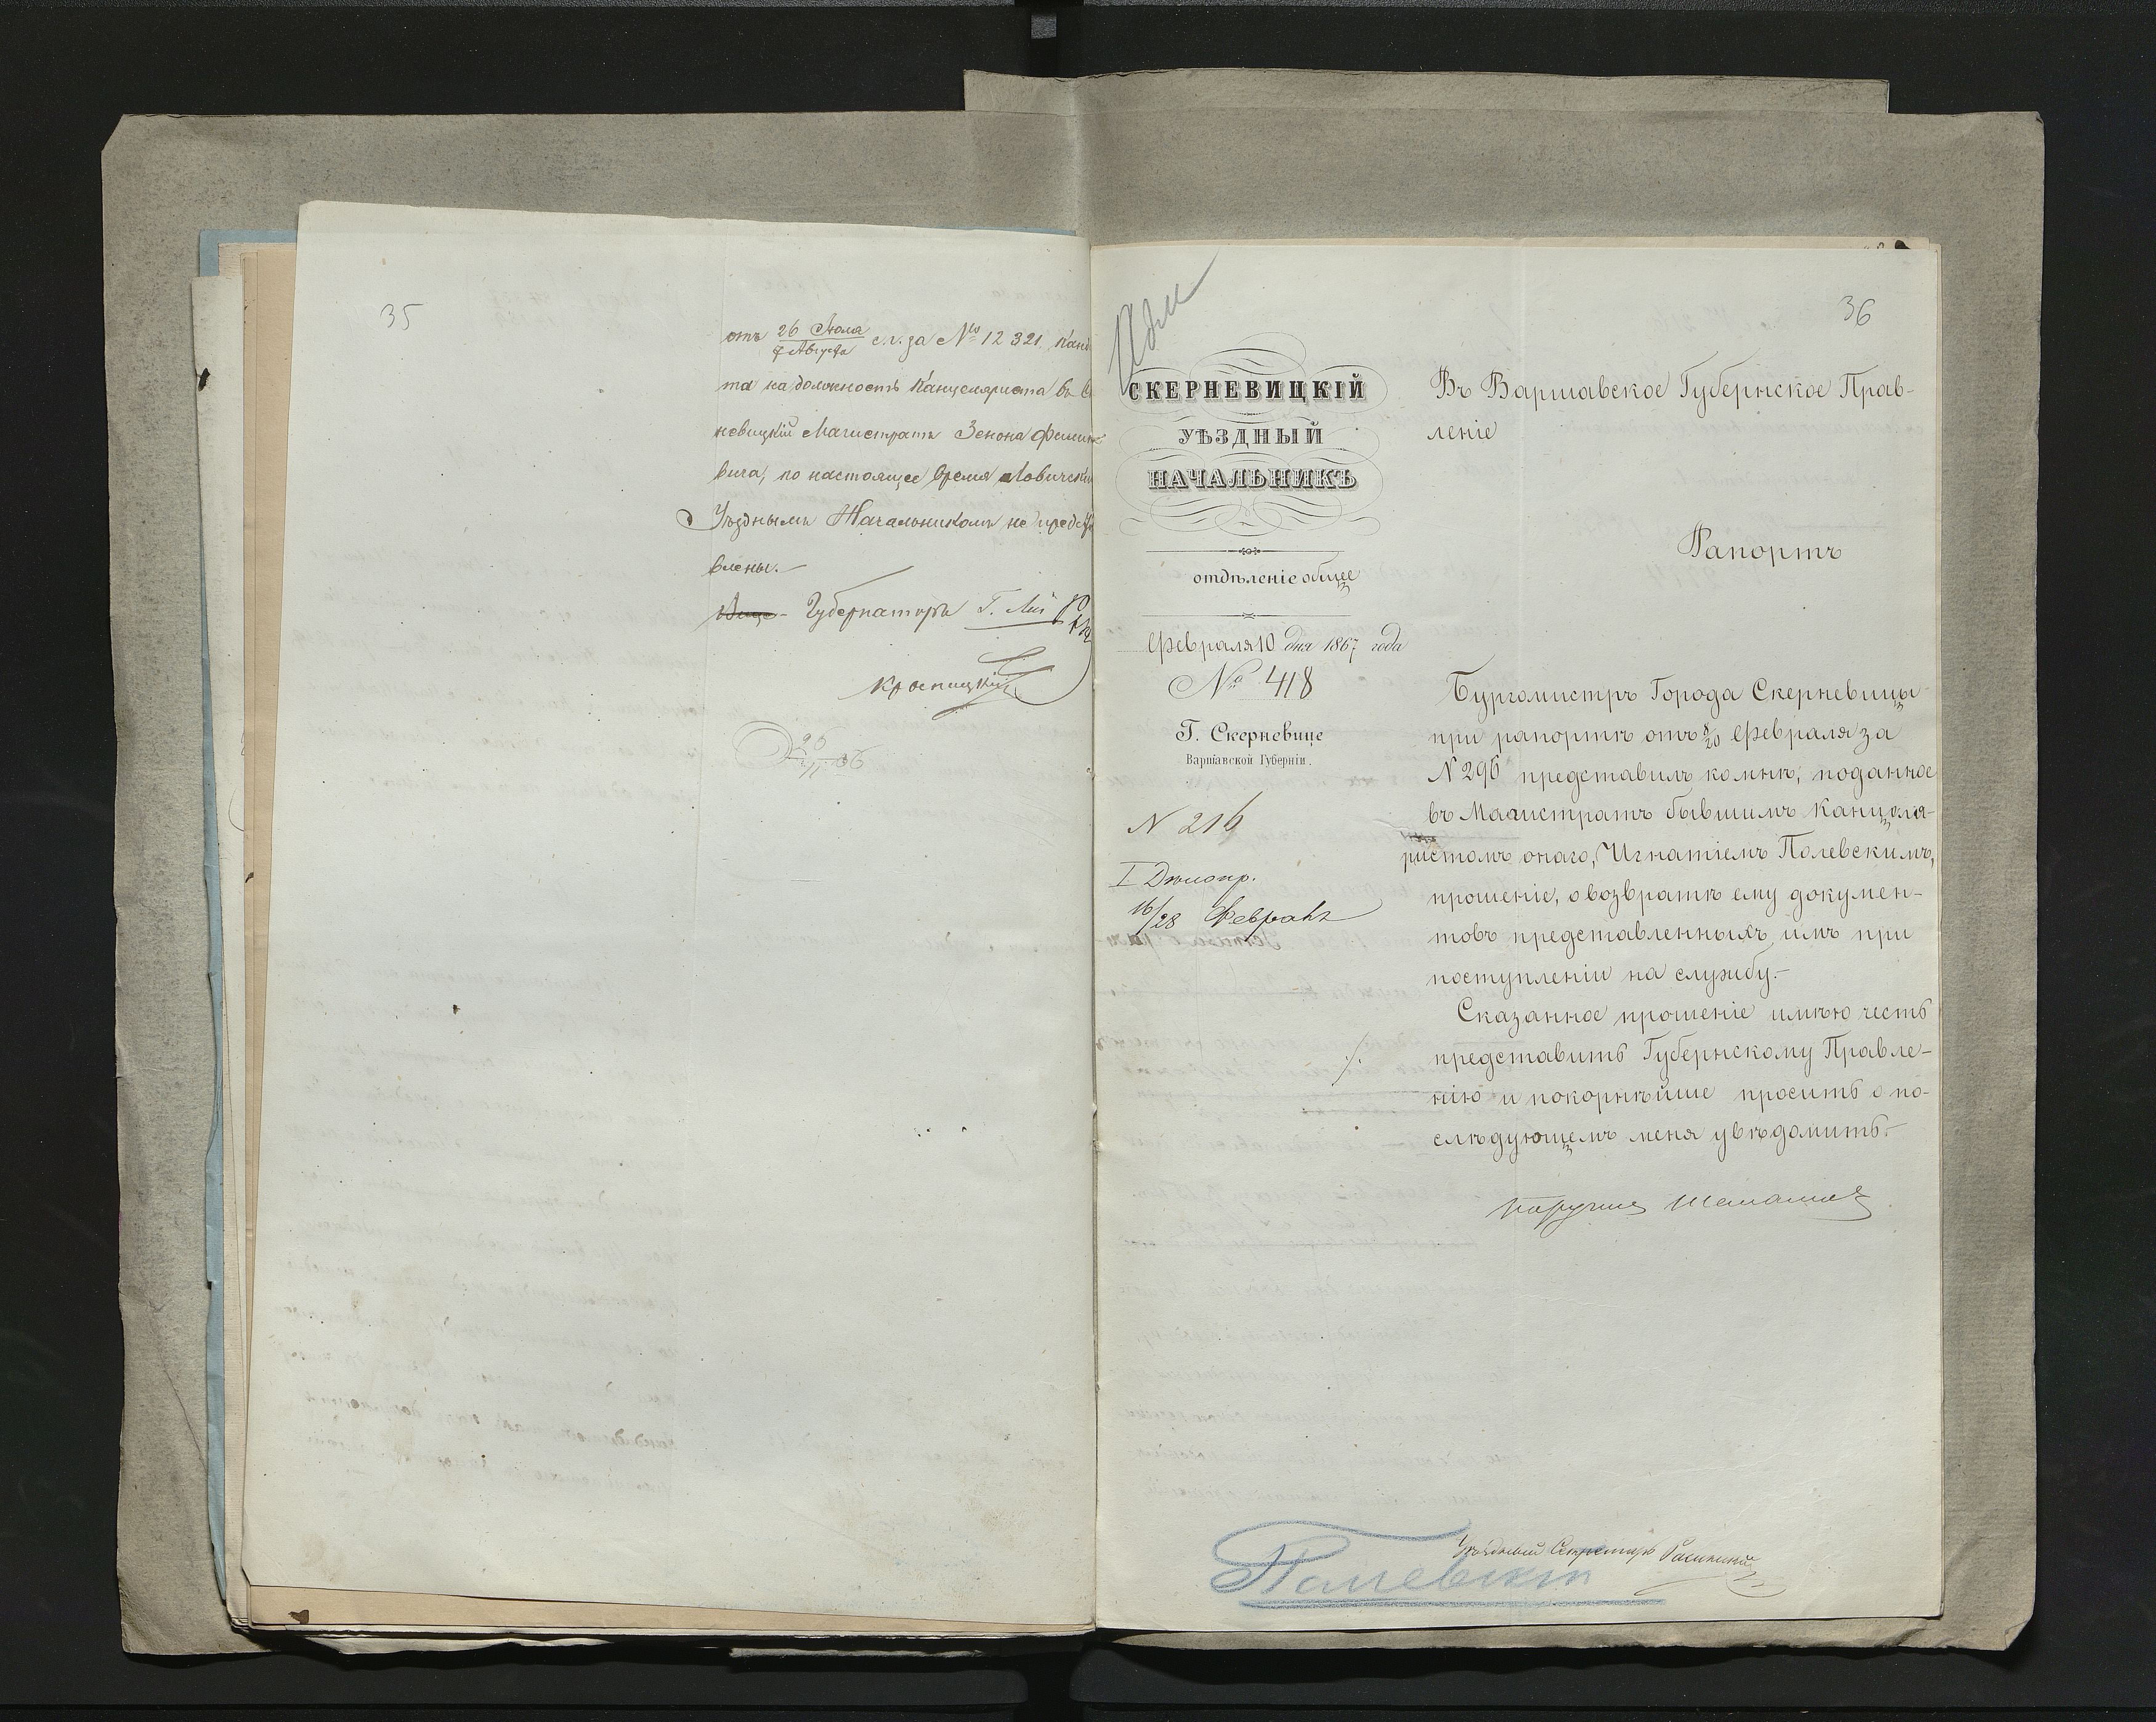 35
отъ 26 Іюля / 7 Августа с.г. за № 12321, Канд
та на должность Канцеляриста въ С
невицкій Магистратъ Зенона Филип
вича, по настоящее время Ловичски
Уѣзднымъ Начальникомъ не предст
влены.
Вице- Губернаторъ Г. Л
36
СКЕРНЕВИЦКІЙ
УѢЗДНЫЙ
НАЧАЛЬНИКЪ
отдѣленіе общее
Февраля 10 дня 1867 года
№ 418
Г. Скерневице
Варшавской Губерніи.
N 216
I Дѣлопр.
16/28 Февраля
Въ Варшавское Губернское Прав-
леніе
Рапортъ
Бургомистръ Города Скерневицы
при рапортѣ отъ 8/20 Февраля за
N 296 представилъ комнѣ, поданное
въ Магистратъ бывшимъ Канцеля-
ристомъ онаго, Игнатіемъ Полевскимъ,
прошеніе, о возвратѣ ему докумен-
товъ представленныхъ имъ при
поступленіи на службу.-
Сказанное прошеніе имѣю честь
представить Губернскому Правле-
нію и покорнѣйше просить о по-
слѣдующемъ меня увѣдомить.-
Поручикъ
Уѣздный Секретарь